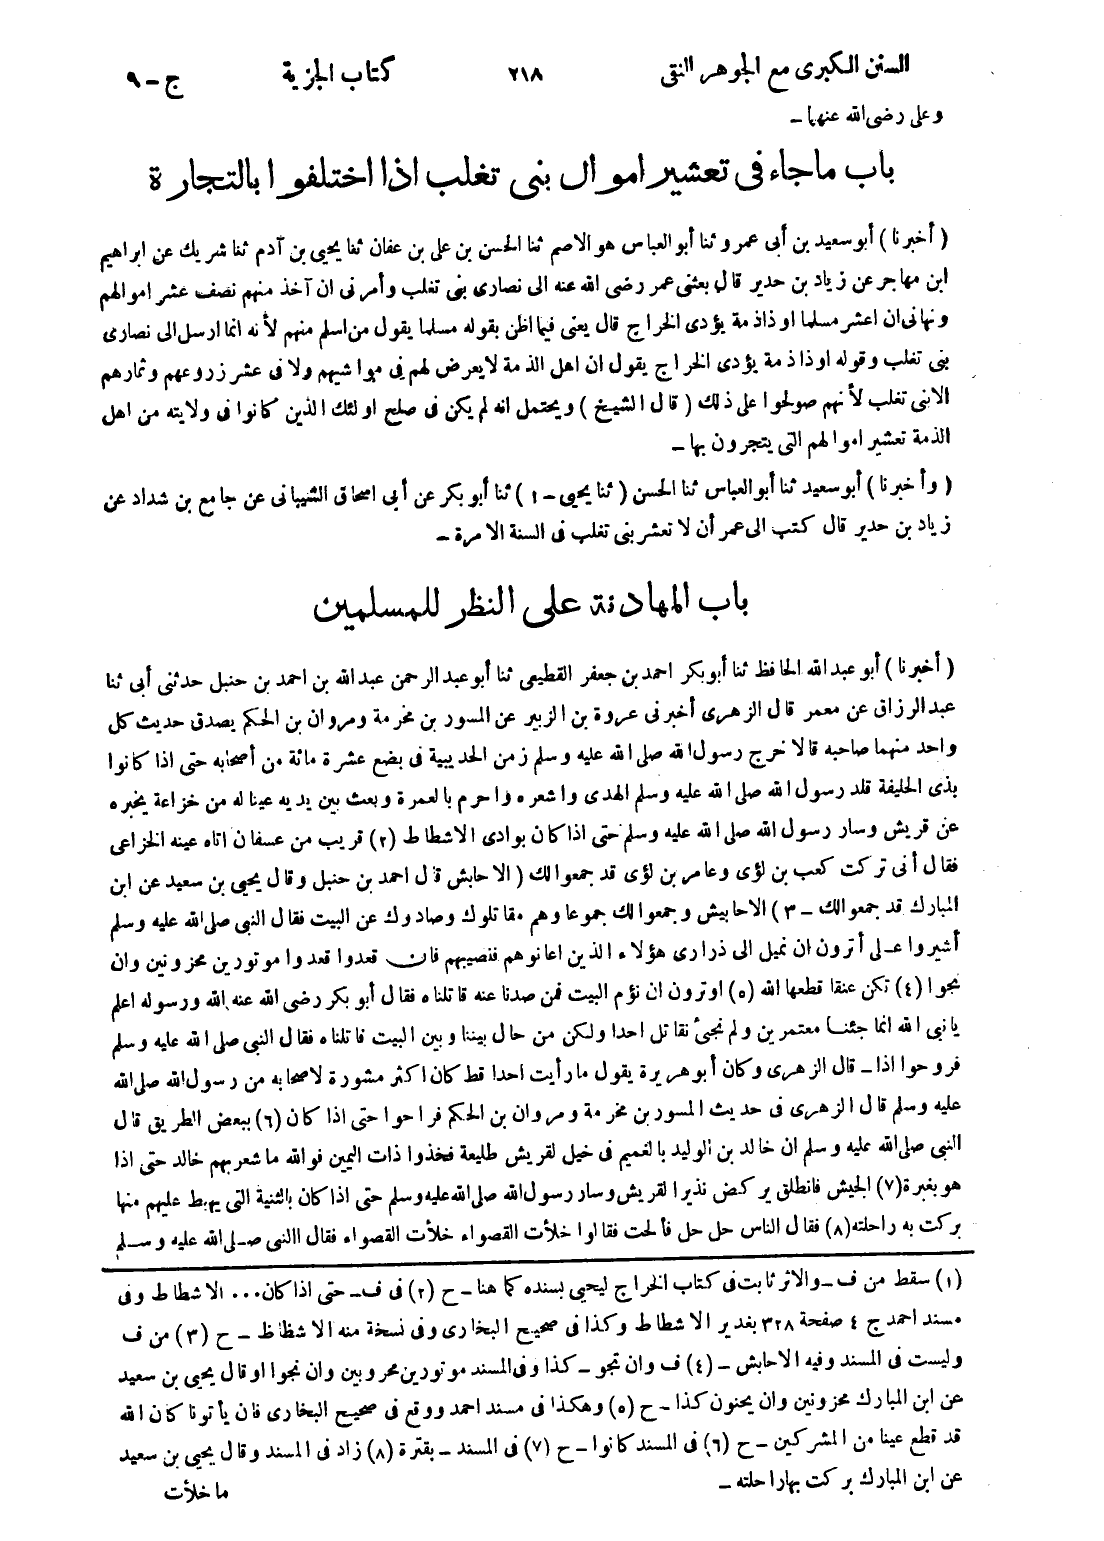 السنن الكبرى مع الجوهر النقى ٢١٨ كتاب الجزية ج – ٩
وعلى رضى الله عنهما –
باب ماجاء فى تعشير اموال بنى تغلب اذا اختلفوا بالتجارة
( أخبرنا ) أبو سعيد بن أبى عمرو ثنا أبو العباس هو الاصم ثنا الحسن بن على بن عفان ثنا يحيى بن آدم ثنا شريك عن ابراهيم
ابن مهاجر عن زياد بن حدير قال بعثنى عمر رضى الله عنه الى نصارى بنى تغلب وأمرنى ان آخذ منهم نصف عشر اموالهم
ونهانى ان اعشر مسلما او ذا ذمة يؤدى الخراج قال يعنى فيما اظن بقوله مسلما يقول من اسلم منهم لأنه انما ارسل الى نصارى
بنى تغلب وقوله او ذا ذمة يؤدى الخراج يقول ان اهل الذمة لايعرض لهم فى مواشيهم ولا فى عشر زروعهم وثمارهم
الابنى تغلب لأنهم صولحوا على ذلك ( قال الشيخ ) ويحتمل انه لم يكن فى صلح اولئك الذين كانوا فى ولايته من اهل
الذمة تعشير اموالهم التى يتجرون بها –
( وأخبرنا ) أبو سعيد ثنا أبو العباس ثنا الحسن ( ثنا يحيى – ١ ) ثنا أبو بكر عن أبى اسحاق الشيبانى عن جامع بن شداد عن
زياد بن حدير قال كتب الى عمر أن لا نعشر بنى تغلب فى السنة الا مرة –
باب المهادنة على النظر للمسلمين
( أخبرنا ) أبو عبد الله الحافظ ثنا أبوبكر احمد بن جعفر القطيعى ثنا أبو عبد الرحمن عبد الله بن احمد بن حنبل حدثنى أبى ثنا
عبد الرزاق عن معمر قال الزهرى أخبرنى عروة بن الزبير عن المسور بن مخرمة ومروان بن الحكم يصدق حديث كل
واحد منهما صاحبه قالا خرج رسول الله صلى الله عليه وسلم زمن الحديبية فى بضع عشرة مائة من أصحابه حتى اذا كانوا
بذى الحليفة قلد رسول الله صلى الله عليه وسلم الهدى واشعره واحرم بالعمرة وبعث بين يديه عيناله من خزاعة يخبره
عن قريش وسار رسول الله صلى الله عليه وسلم حتى اذا كان بوادى الاشطاط (٢) قريب من عسفان اتاه عينه الخزاعى
فقال أنى تركت كعب بن لؤى وعامر بن لؤى قد جمعوا لك ( الاحابش قال احمد بن حنبل وقال يحيى بن سعيد عن ابن
المبارك قد جمعوالك – ٣ ) الاحابيش وجمعوا لك جموعا وهم مقاتلوك وصادوك عن البيت فقال النبى صلى الله عليه وسلم
أشيروا على أترون ان نميل الى ذرارى هؤلاء الذين اعانوهم فنصيبهم فان قعدوا قعدوا موتورين محزونين وان
نجوا (٤) تكن عنقا قطعها الله (٥) اوترون ان نؤم البيت فمن صدنا عنه قاتلناه فقال أبو بكر رضى الله عنه الله ورسوله اعلم
يانبى الله انما جئنا معتمرين ولم نجئ نقاتل احدا ولكن من حال بيننا وبين البيت قاتلناه فقال النبى صلى الله عليه وسلم
فروحوا اذا – قال الزهرى وكان أبو هريرة يقول مارأيت احدا قط كان اكثر مشورة لاصحابه من رسول الله صلى الله
عليه وسلم قال الزهرى فى حديث المسور بن مخرمة ومروان بن الحكم فراحوا حتى اذا كان (٦) ببعض الطريق قال
النبى صلى الله عليه وسلم ان خالد بن الوليد بالغميم فى خيل لقريش طليعة فخذوا ذات اليمين فوالله ما شعر بهم خالد حتى اذا
هو بغبرة (٧) الجيش فانطلق يركض نذيرا لقريش وسار رسول الله صلى الله عليه وسلم حتى اذا كان بالثنية التى يهبط عليهم منها
بركت به راحلته (٨) فقال الناس حل حل فألحت فقالوا خلأت القصواء خلأت القصواء فقال النبى صلى الله عليه وسلم
(١) سقط من ف – والاثر ثابت فى كتاب الخراج ليحيى بسنده كما هنا – ح (٢) فى ف – حتى اذا كان ... الاشطاط وفى
مسند احمد ج ٤ صفحة ٣٢٨ بغدير الاشطاط وكذا فى صحيح البخارى وفى نسخة منه الاشظاظ – ح (٣) من ف
وليست فى المسند وفيه الاحابش – (٤) ف وان تجو – كذا وفى المسند موتورين محروبين وان نجوا او قال يحيى بن سعيد
عن ابن المبارك محزونين وان يحنون كذا – ح (٥) وهكذا فى مسند احمد ووقع فى صحيح البخارى فان يأتونا كان الله
قد قطع عينا من المشركين – ح (٦) فى المسند كانوا – ح (٧) فى المسند – بقترة (٨) زاد فى المسند وقال يحيى بن سعيد
عن ابن المبارك بركت بها راحلته –
ما خلأت